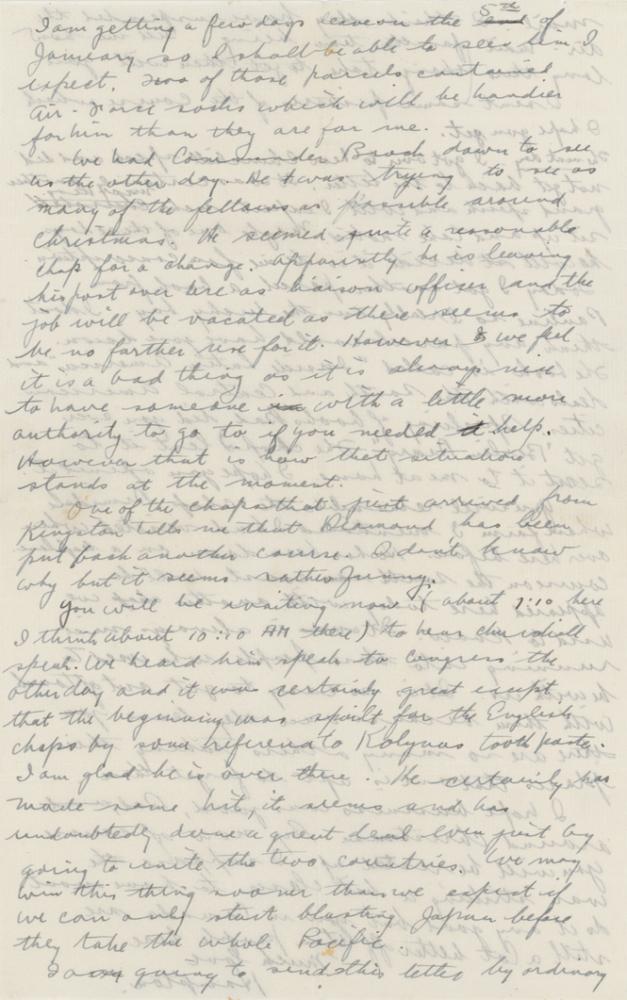 I am getting a few days leave on the 5th of
January so I shall be able to see him I
expect. Two of those parcels contained
Air-Force socks which will be handier
for him than they are for me.
We had Commander Brock down to see
us the other day. He was trying to see as
many of the fellows as possible around
Christmas. He seemed quite a reasonable
chap for a change. Apparently he is leaving
his post over here as liaison officer and the
job will be vacated as there seems to
be no farther use for it. However we feel
it is a bad thing as it is always nice
to have someone with a little more
authority to go to if you needed help.
However that is how that situation
stands at the moment.
One of the chaps that just arrived from
Kingston tells me that Diamond has been
put back another course. I don't know
why but it seems rather funny.
You will be waiting now (about 1:10 here
I think about 10:10 AM there) to hear Churchill
speak. We heard him speak to Congress the
other day and it was certainly great except
that the beginning was spoilt for the English
chaps by some reference to Kolynos tooth paste.
I am glad he is over there. He certainly has
made some hit, it seems and has
undoubtedly done a great deal even just by
going to unite the two countries. We may
win this thing sooner than we expect if
we can only start blasting Japan before
they take the whole Pacific.
I am going to send this letter by ordinary